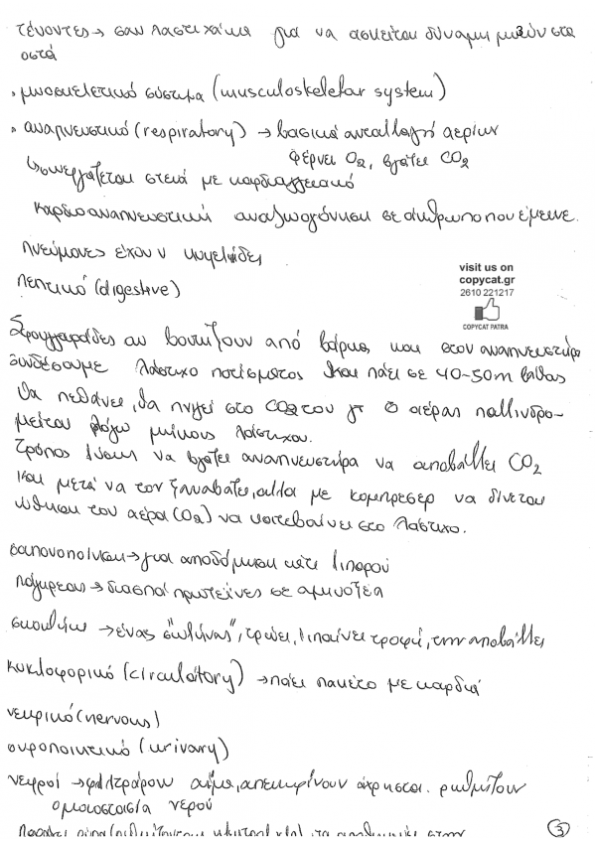 τένοντες → σαν λαστιχάκια για να ασκείται δύναμη μυών στα
οστά
• μυοσκελετικό σύστημα (musculoskeletar system)
• αναπνευστικό (respiratory) → βασικά ανταλλαγή αερίων
φέρνει O2, βγάζει CO2
↳ συνεργάζεται στενά με καρδιαγγειακό
καρδιοαναπνευστική αναζωογόνηση σε άνθρωπο που έμεινε.
πνεύμονες έχουν κυψελίδες
πεπτικό (digestive)
visit us on
copycat.gr
2610 221217
COPYCAT PATRA
Σφουγγαράδες αν βουτήξουν από βάρκα, και στον αναπνευστήρα
συνδέσουμε λάστιχο ποτίσματος και πάει σε 40-50m βάθος
θα πεθάνει, θα πνιγεί στο CO2 του γτ ο αέρας παλινδρο-
μείται λόγω μήκους λάστιχου.
Τρόπος λύσης να βγάζει αναπνευστήρα να αποβάλλει CO2
και μετά να τον ξαναβάζει, αλλά με κομπρεσέρ να δίνεται
ώθηση του αέρα (O2) να κατεβαίνει στο λάστιχο.
σαπωνοποίηση → για αποδόμηση κάτι λιπαρού
πάγκρεας → διασπά πρωτεΐνες σε αμινοξέα
→ ένας "σωλήνας", τρώει, λιπαίνει τροφή, την αποβάλλει
κυκλοφορικό (circulatory) → πάει πακέτο με καρδιά
νευρικό (nervous)
ουροποιητικό (urinary)
νεφροί → φιλτράρουν αίμα, απεκκρίνουν άχρηστα. ρυθμίζουν
ομοιοστασία νερού
3